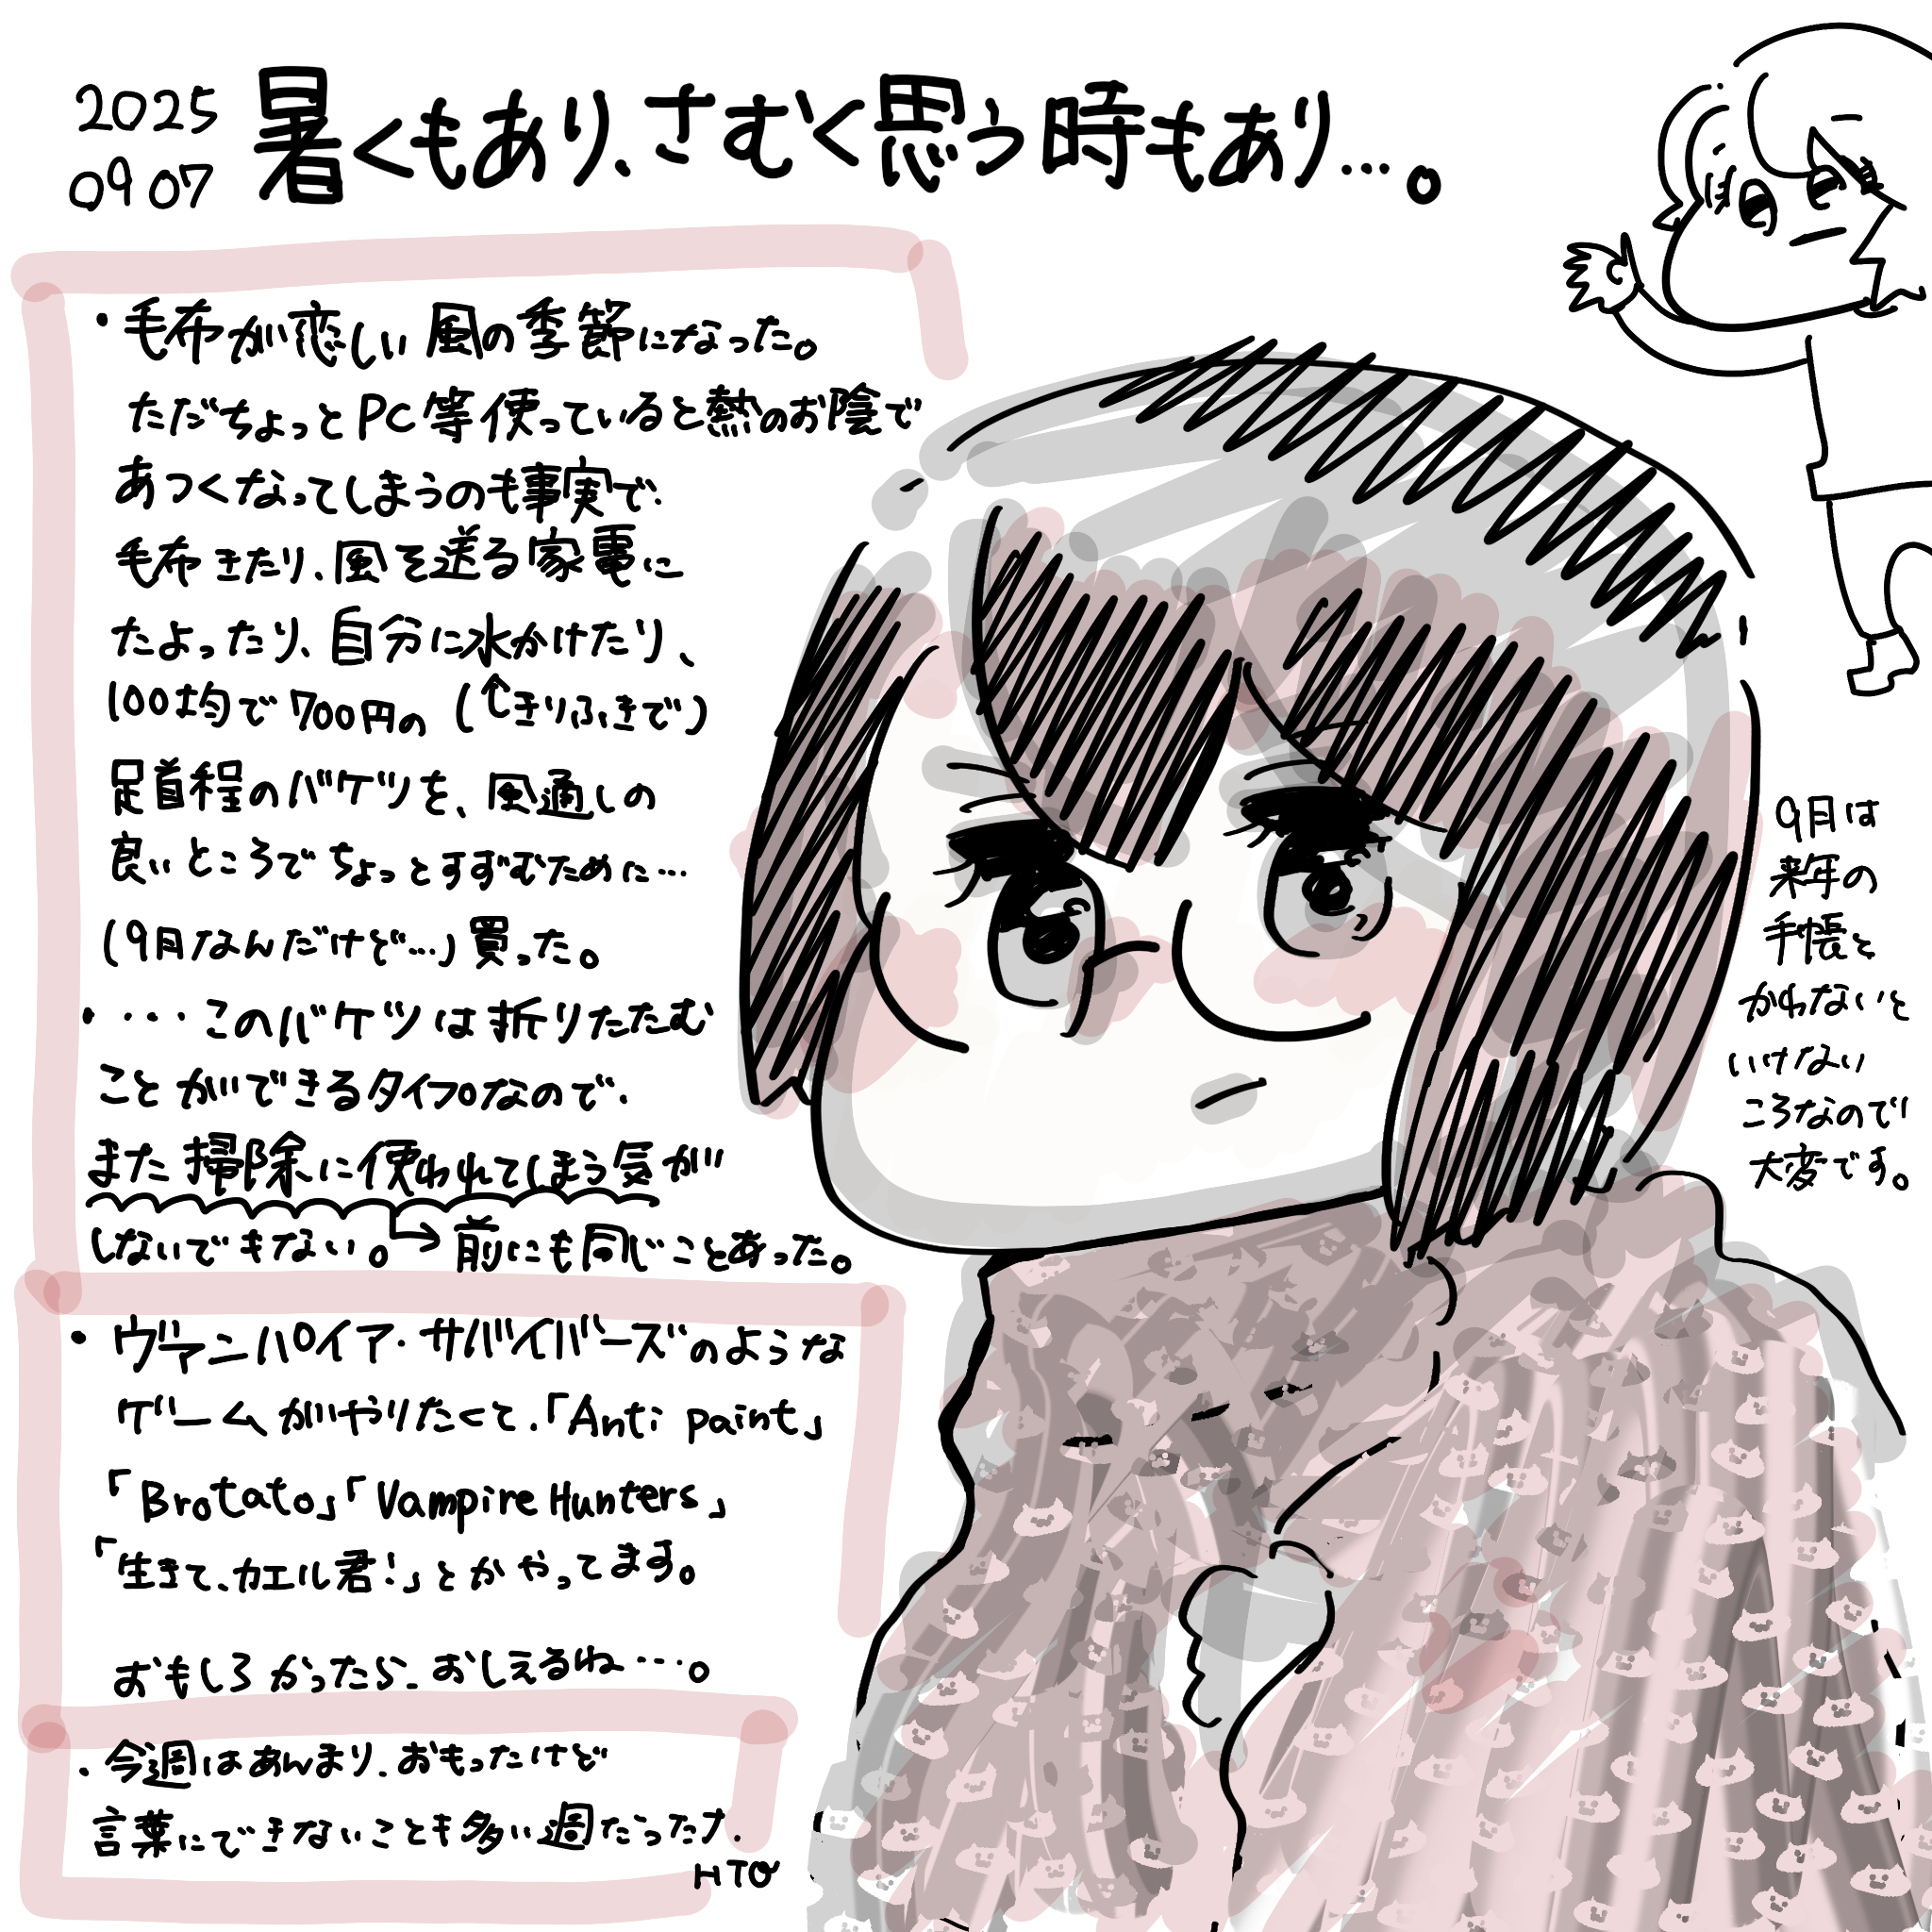 2025
0907
暑くもあり、さむく思う時もあり…。
・毛布が恋しい風の季節になった。
ただちょっとPC等使っていると熱のお陰で
あつくなってしまうのも事実で、
毛布きたり、風を送る家電に
たよったり、自分に水かけたり、
100均で700円の(↑きりふきで)
足首程のバケツを、風通しの
良いところでちょっとすずむために…
(9月なんだけど…)買った。
・・・・このバケツは折りたたむ
ことができるタイプなので、
また掃除に使われてしまう気が
しないでもない。→前にも同じことあった。
・ヴァンパイア・サバイバーズのような
ゲームがやりたくて、「Anti paint」
「Brotato」「Vampire Hunters」
「生きて、カエル君!」とかやってます。
おもしろかったら、おしえるね…。
・今週はあんまり、おもったけど
言葉にできないことも多い週だったナ.
HTO
9月は
来年の
手帳と
かわないと
いけない
ころなので
大変です。